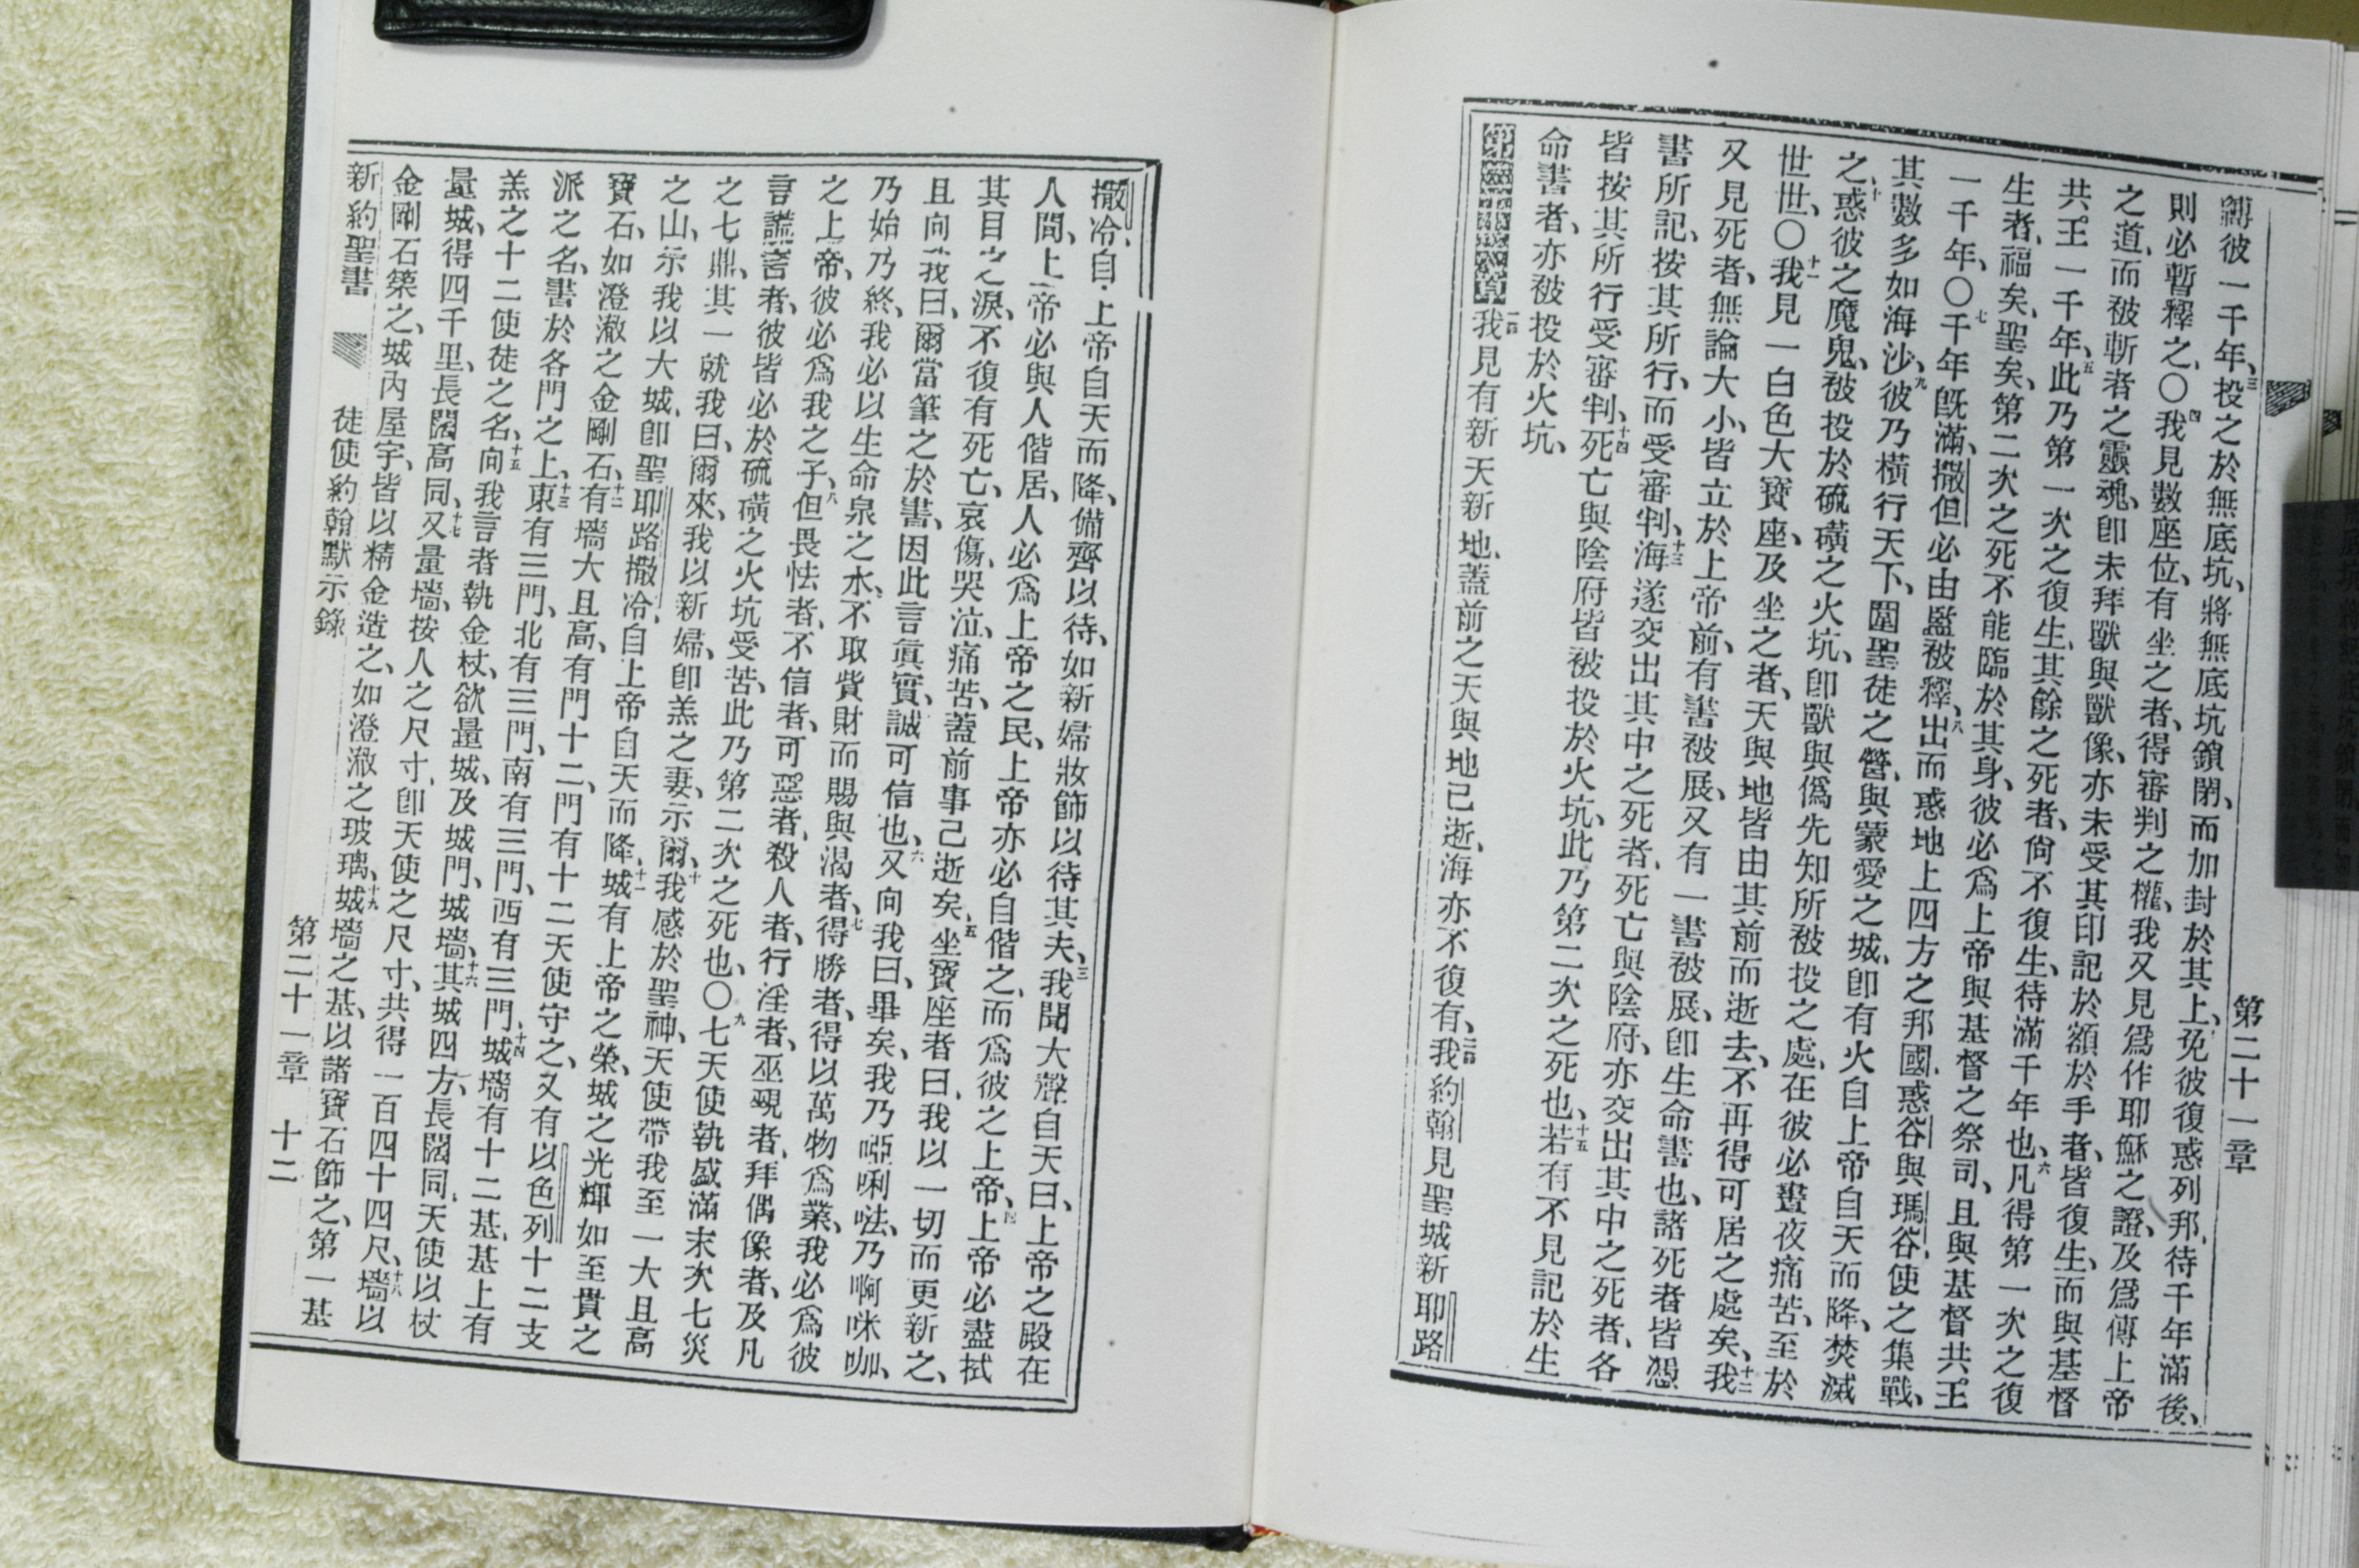 第二十一章
縛彼一千年、三投之於無底坑、將無底坑鎖閉、而加封於其上、免彼復惑列邦、待千年滿後、
則必暫釋之、〇四我見數座位、有坐之者、得審判之權、我又見爲作耶穌之證、及爲傳上帝
之道、而被斬者之靈魂、卽未拜獸與獸像、亦未受其印記於額於手者、皆復生、而與基督
共王一千年、五此乃第一次之復生、其餘之死者、尙不復生、待滿千年也、六凡得第一次之復
生者、福矣、聖矣、第二次之死不能臨於其身、彼必爲上帝與基督之祭司、且與基督共王
一千年、〇七千年旣滿、撒但必由監被釋、八出而惑地上四方之邦國、惑谷與瑪谷、使之集戰、
其數多如海沙、九彼乃橫行天下、圍聖徒之營、與蒙愛之城、卽有火自上帝自天而降、焚滅
之、十惑彼之魔鬼、被投於硫磺之火坑、卽獸與僞先知所被投之處、在彼必晝夜痛苦、至於
世世、〇十一我見一白色大寶座、及坐之者、天與地皆由其前而逝去、不再得可居之處矣、十二我
又見死者、無論大小、皆立於上帝前、有書被展、又有一書被展、卽生命書也、諸死者皆憑
書所記、按其所行、而受審判、十三海遂交出其中之死者、死亡與陰府、亦交出其中之死者、各
皆按其所行受審判、十四死亡與陰府皆被投於火坑、此乃第二次之死也、十五若有不見記於生
命書者、亦被投於火坑、
第二十一章一我見有新天新地、蓋前之天與地已逝、海亦不復有、二我約翰見聖城新耶路
撒冷、自上帝自天而降、備齊以待、如新婦妝飾以待其夫、三我聞大聲自天曰、上帝之殿在
人間、上帝必與人偕居、人必爲上帝之民、上帝亦必自偕之、而爲彼之上帝、四上帝必盡拭
其目之淚、不復有死亡、哀傷、哭泣、痛苦、蓋前事已逝矣、五坐寶座者曰、我以一切而更新之、
且向我曰、爾當筆之於書、因此言眞實、誠可信也、六又向我曰、畢矣、我乃啞唎㕸、乃啊咪咖、
乃始乃終、我必以生命泉之水、不取貲財而賜與渴者、七得勝者、得以萬物爲業、我必爲彼
之上帝、彼必爲我之子、八但畏怯者、不信者、可惡者、殺人者、行淫者、巫覡者、拜偶像者、及凡
言謊言者、彼皆必於硫磺之火坑受苦、此乃第二次之死也、〇九七天使執盛滿末次七災
之七鼎、其一就我曰、爾來、我以新婦、卽羔之妻、示爾、十我感於聖神、天使帶我至一大且高
之山、示我以大城、卽聖耶路撒冷、自上帝自天而降、十一城有上帝之榮、城之光輝如至貴之
寶石、如澄澈之金剛石、十二有墻大且高、有門十二、門有十二天使守之、又有以色列十二支
派之名、書於各門之上、十三東有三門、北有三門、南有三門、西有三門、十四城墻有十二基、基上有
羔之十二使徒之名、十五向我言者執金杖、欲量城、及城門、城墻、十六其城四方、長闊同、天使以杖
量城、得四千里、長闊高同、十七又量墻、按人之尺寸、卽天使之尺寸、共得一百四十四尺、十八墻以
金剛石築之、城內屋宇、皆以精金造之、如澄澈之玻璃、十九城墻之基、以諸寶石飾之、第一基
新約聖書 徒使約翰默示錄 第二十一章 十二